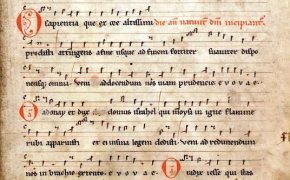 O sapientia que ex ore altissimi
prodisti attingens a fine usque ad finem fortiter suauiter dispo
nensque omnia. veni ad docendum nos uiam prudencie. e v o v a e.
O adonay et dux domus israhel qui moysi in igne flamme
rubi apparuisti et ei in sina legem dedisti. veni ad redimendum
nos in brachio extento. e v o v a e. O radix iesse qui stas